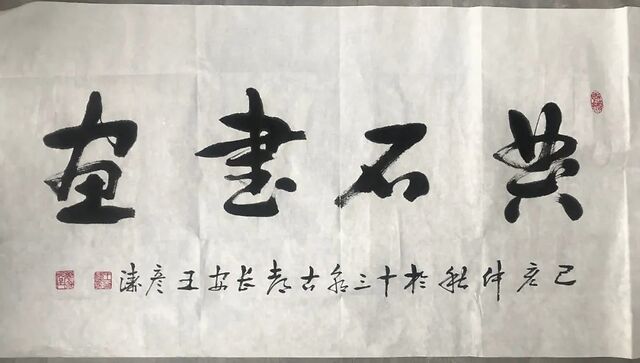 典石書画
己亥仲秋於十三朝古都长安王彦涛